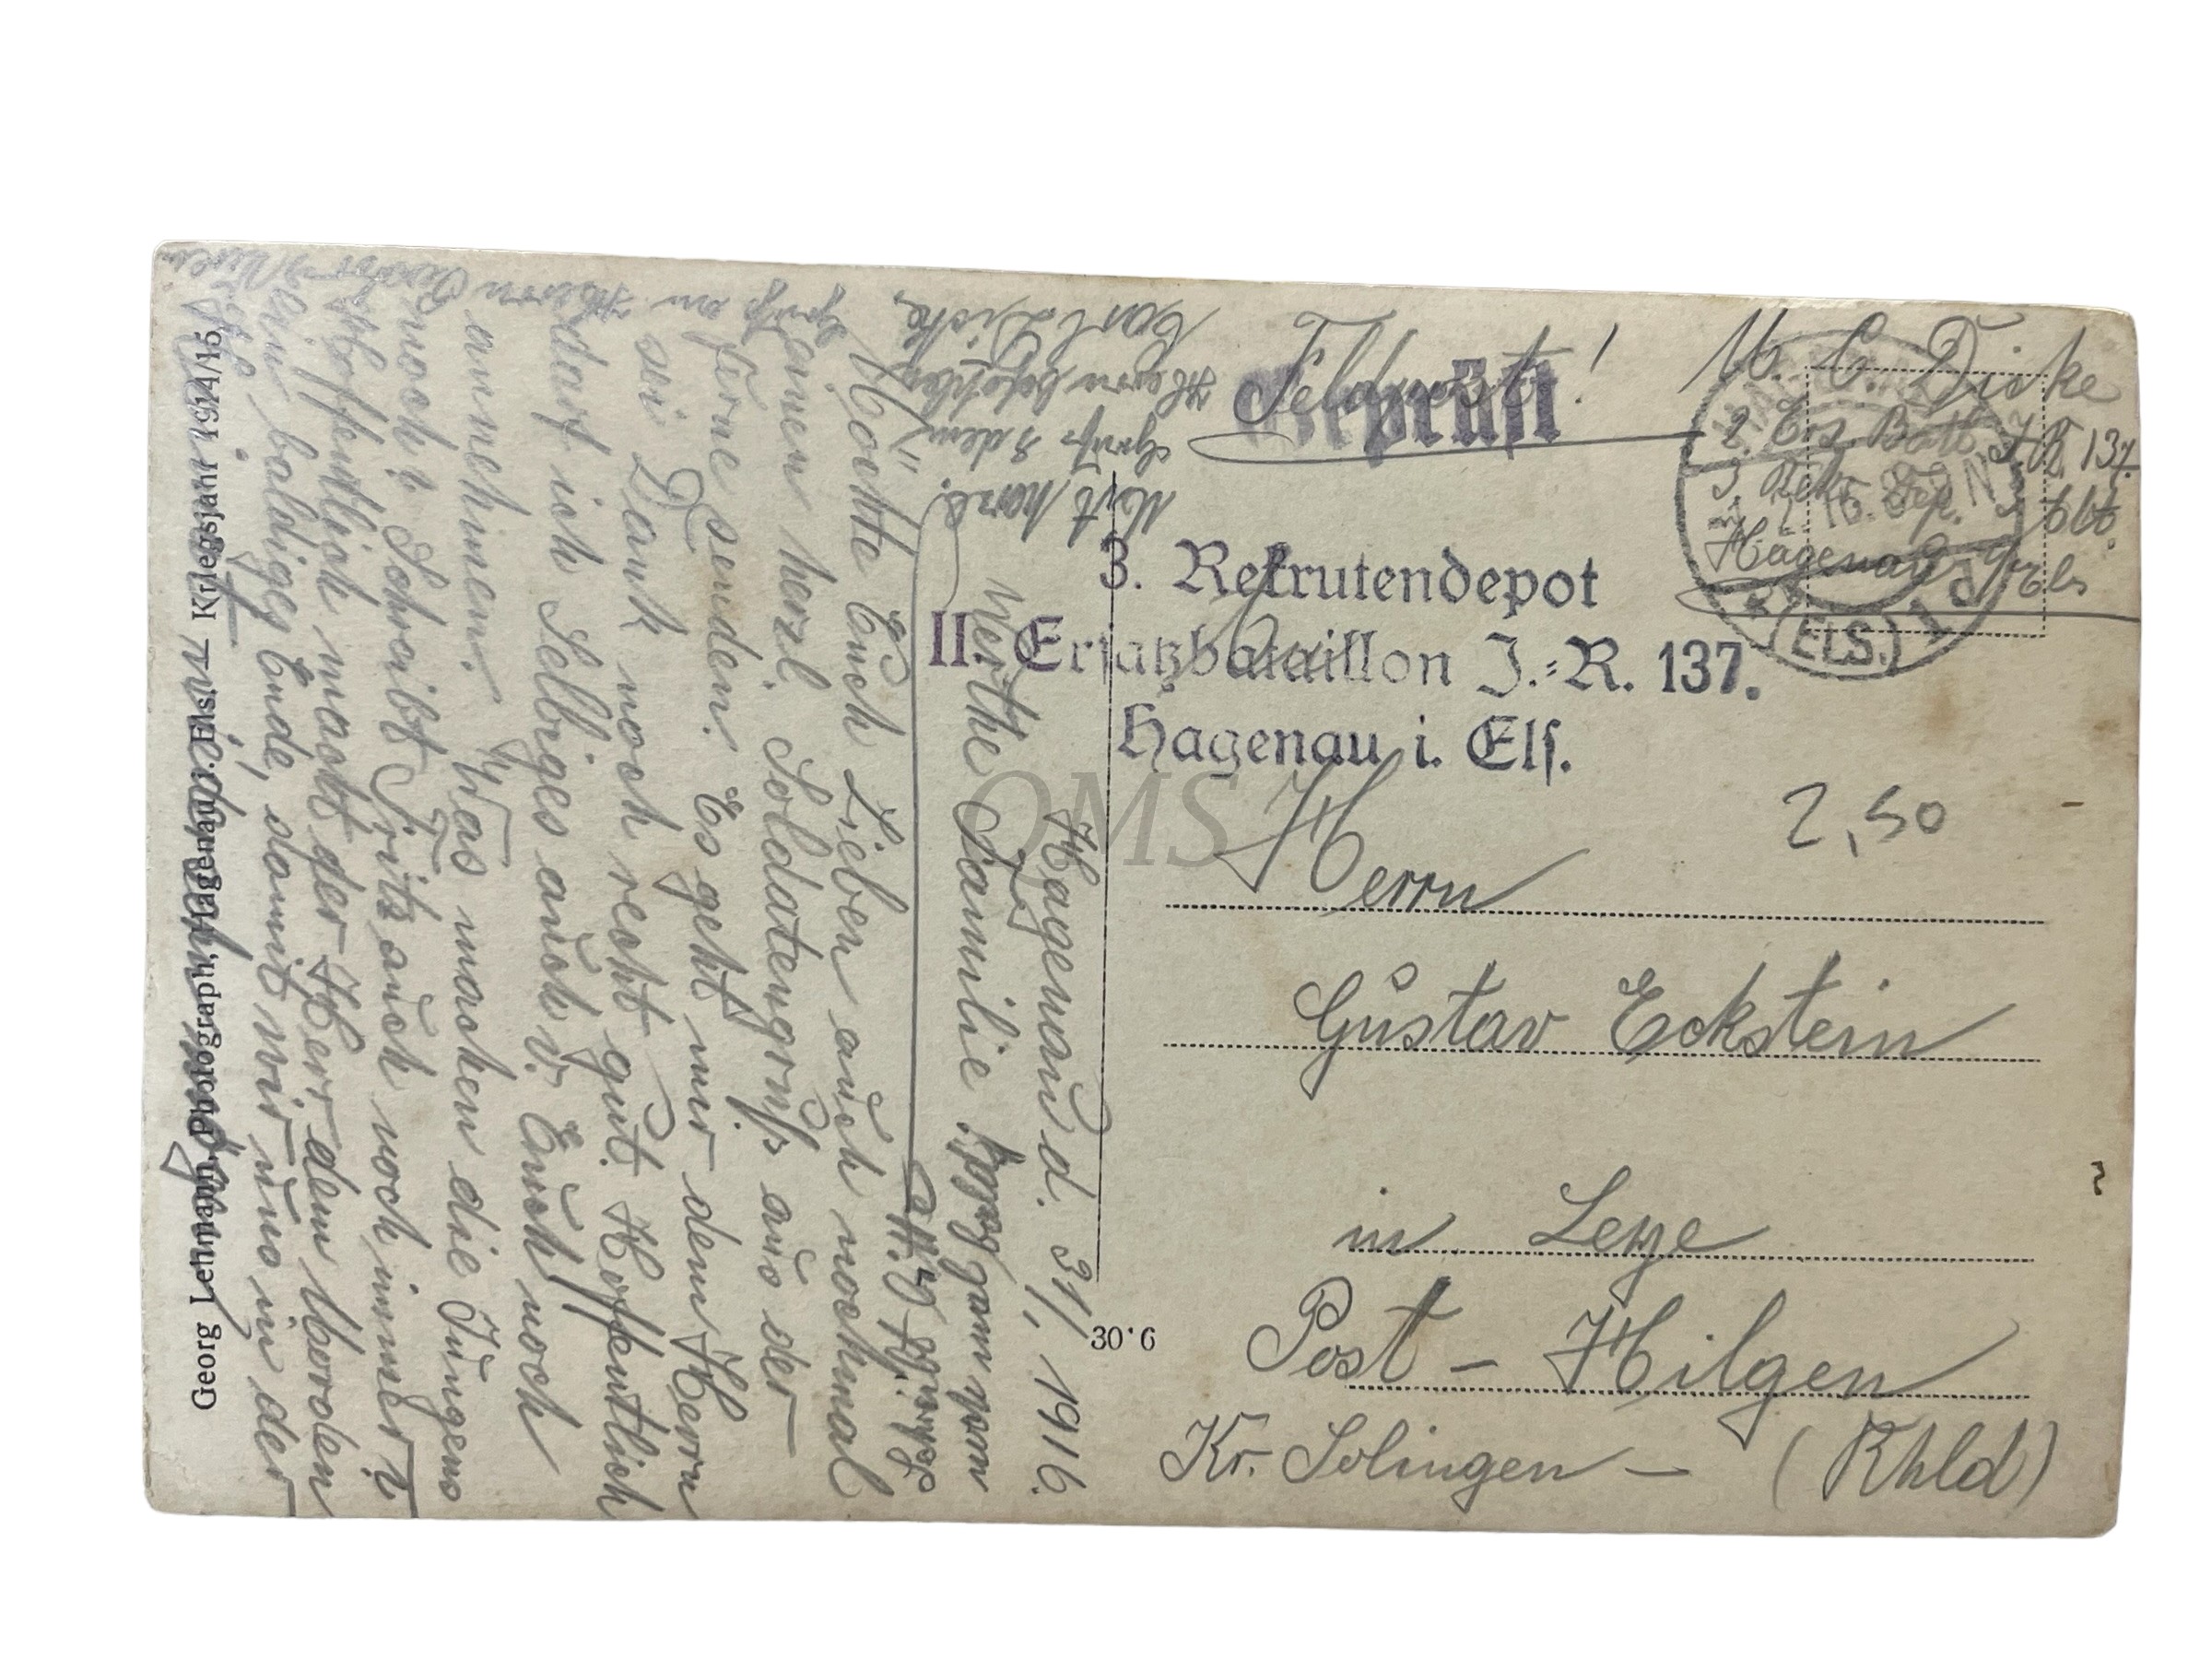 Feldpost!
Geprüft
M. C. Dicke
2. Ers. Batl. I.R. 137.
3 Rekr. Dep.
Hagenau i/Els
(ELS.)
3. Rekrutendepot
II. Ersatzbataillon J.-R. 137.
Hagenau i. Els.
2,50
Herrn
Gustav Eckstein
in Lenze
Post - Hilgen
Kr. Solingen - (Rhld)
30·6
Hagenau d. 31/1. 1916.
Werthe Familie
Möchte Euch Lieben auch nochmal
einen herzl. Soldatengruß aus der
Ferne senden. Es geht mir dem Herrn
sei Dank noch recht gut. Hoffentlich
darf ich Selbiges auch v. Euch noch
annehmen. Was machen die Jungens
noch? Schreibt Fritz auch noch immer?
Hoffentlich macht der Herr dem Morden
ein baldiges Ende, damit wir uns in der
Gruß an Herrn
Mit herzl.
Gruß u. dem
Herrn befohlen
Carl Dicke,
Georg Lehmann, Photograph, Hagenau i. Els. — Kriegsjahr 1914/15
QMS